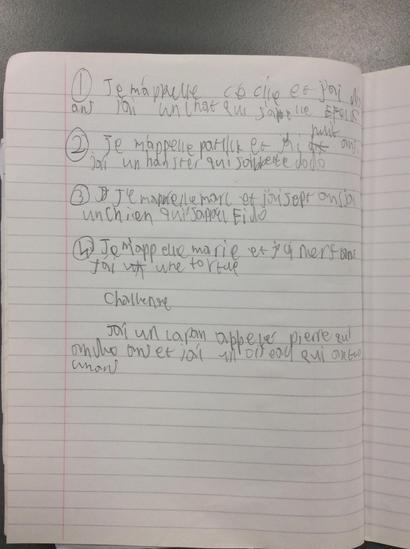 ① Je m'appelle cécile et j'ai
ans j'ai un chat qui s'appelle
② Je m'appelle patrick et j'ai huit ans
j'ai un hamster qui s'appelle dodo
③ Je mappelle marc et j'ai sept ans j'ai
un chien qui s'appell Fido
④ Je M'appelle marie et j'ai neuf ans
j'ai une tortue
Challenge
J'ai un lapin appelle pierre qui
ans et j'ai un oiseau qui
un ans